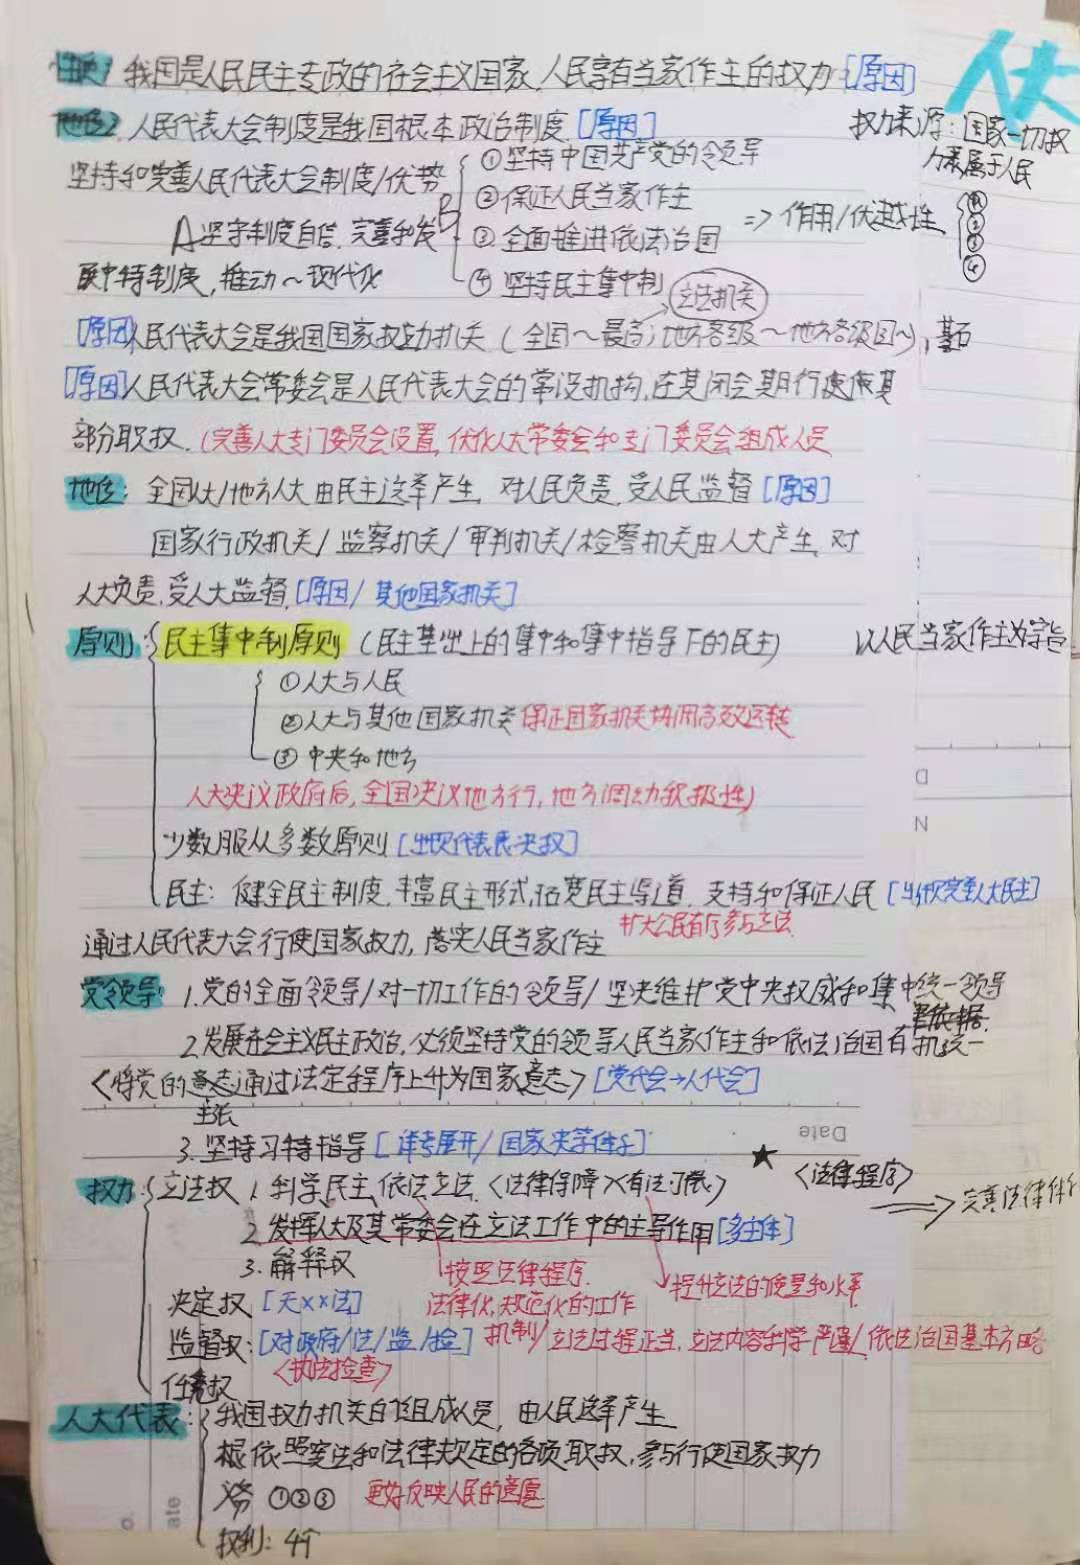 人大
性质: 我国是人民民主专政的社会主义国家,人民享有当家作主的权力[原因]
地位2. 人民代表大会制度是我国根本政治制度[原因]
权力来源:国家一切权
力来属于人民
坚持和完善人民代表大会制度/优势
①坚持中国共产党的领导
②保证人民当家作主
③全面推进依法治国
④坚持民主集中制
=> 作用/优越性
①
②
③
④
坚守制度自信,完善和发
展中特制度,推动~现代化
立法机关
[原因]人民代表大会是我国国家权力机关(全国~最高;地方各级~地方各级国~),基石
[原因]人民代表大会常委会是人民代表大会的常设机构,在其闭会期行使其
部分职权.(完善人大专门委员会设置,优化人大常委会和专门委员会组成人员
地位: 全国人大/地方人大由民主选举产生,对人民负责,受人民监督[原因]
国家行政机关/监察机关/审判机关/检察机关由人大产生,对
人大负责,受人大监督[原因/其他国家机关]
原则: 民主集中制原则(民主基础上的集中和集中指导下的民主)
以人民当家作主为宗旨
①人大与人民
②人大与其他国家机关 保证国家机关协调高效运转
③中央和地方
人大决议政府后,全国决议地方行,地方调动积极性)
少数服从多数原则[出现代表表决权]
民主: 健全民主制度,丰富民主形式,拓宽民主渠道,支持和保证人民[完善人大民主]
扩大公民有序参与立法
通过人民代表大会行使国家权力,落实人民当家作主
党领导: 1.党的全面领导/对一切工作的领导/坚决维护党中央权威和集中统一领导
2.发展社会主义民主政治,必须坚持党的领导人民当家作主和依法治国有机统一
<将党的意志通过法定程序上升为国家意志>[党代会→人代会]
主张
3.坚持习特指导[详考展开/国家决策体系]
Date
权力: 立法权 1.科学民主,依法立法.<法律保障><有法可依>
<法律程序>
=> 完善法律体系
2.发挥人大及其常委会在立法工作中的主导作用[多主体]
3.解释权
按照法律程序.
提升立法的质量和水平
决定权[关××法]
法律化,规范化的工作
监督权:[对政府/法/监/检]
机制/立法过程正当,立法内容科学严谨/依法治国基本方略
<执法检查>
任免权
人大代表: 我国权力机关的组成人员,由人民选举产生
根依照宪法和法律规定的各项职权,参与行使国家权力
义务 ①②③ 更好反映人民的意愿
权利: 4个